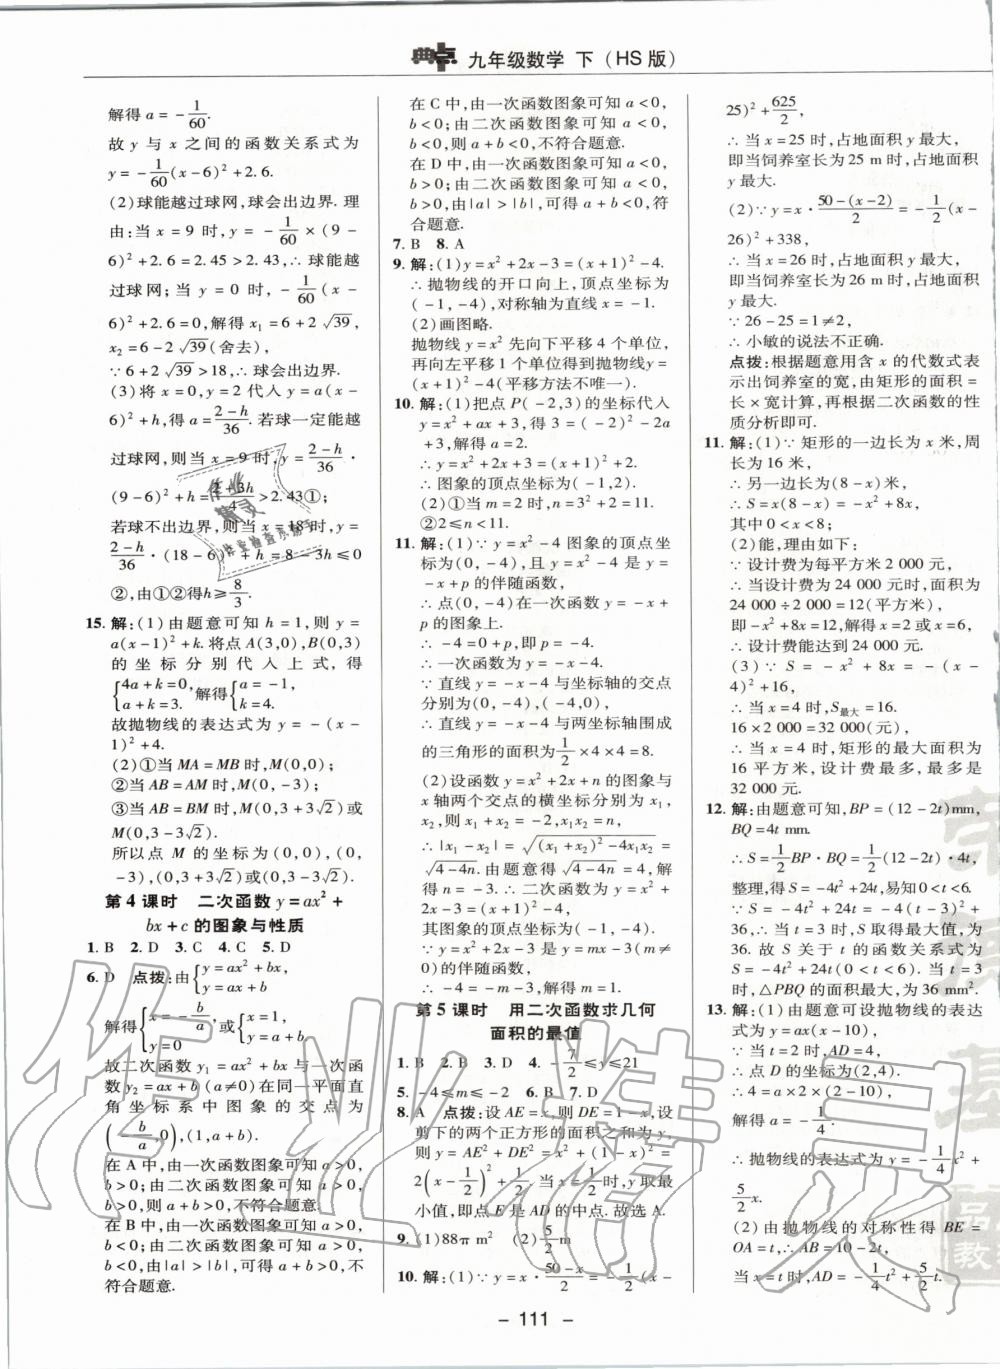 典点 九年级数学 下（HS版）
解得 a=-1/60.
故 y 与 x 之间的函数关系式为
y=-1/60(x-6)²+2.6.
(2)球能越过球网,球会出边界. 理
由:当 x=9 时,y=-1/60×(9-
6)²+2.6=2.45>2.43,∴球能越
过球网;当 y=0 时,-1/60(x-
6)²+2.6=0,解得 x₁=6+2√39,
x₂=6-2√39(舍去),
∵6+2√39>18,∴球会出边界.
(3)将 x=0,y=2 代入 y=a(x-
6)²+h,得 a=(2-h)/36. 若球一定能越
过球网,则当 x=9 时,y=(2-h)/36·
(9-6)²+h=(2+3h)/4>2.43①;
若球不出边界,则当 x=18时,y=
(2-h)/36·(18-6)²+h=8-3h≤0
②,由①②得h≥8/3.
15. 解:(1)由题意可知 h=1,则 y=
a(x-1)²+k. 将点 A(3,0),B(0,3)
的坐标分别代入上式,得
{4a+k=0, a+k=3. 解得{a=-1, k=4.
故抛物线的表达式为 y=-(x-
1)²+4.
(2)①当 MA=MB 时,M(0,0);
②当 AB=AM 时,M(0,-3);
③当 AB=BM 时,M(0,3+3√2)或
M(0,3-3√2).
所以点 M 的坐标为(0,0),(0,
-3),(0,3+3√2)或(0,3-3√2).
第4课时 二次函数 y=ax²+
bx+c 的图象与性质
1. B 2. D 3. C 4. C 5. D
6. D 点拨:由{y=ax²+bx, y=ax+b
解得{x=-b/a, y=0 或{x=1, y=a+b.
故二次函数 y₁=ax²+bx 与一次函
数 y₂=ax+b(a≠0)在同一平面直
角坐标系中图象的交点为
(-b/a,0),(1,a+b).
在 A 中,由一次函数图象可知 a>0,
b>0;由二次函数图象可知 a>0,
b>0,则 a+b>0,不符合题意.
在 B 中,由一次函数图象可知 a>0,
b<0;由二次函数图象可知 a>0,
b<0,由|a|>|b|,可得 a+b>0,不
符合题意.
在 C 中,由一次函数图象可知 a<0,
b<0;由二次函数图象可知 a<0,
b<0,则 a+b<0,不符合题意.
在 D 中,由一次函数图象可知 a<0,
b>0;由二次函数图象可知 a<0,
b>0,由|a|>|b|,可得 a+b<0,符
合题意.
7. B 8. A
9. 解:(1)y=x²+2x-3=(x+1)²-4.
∴抛物线的开口向上,顶点坐标为
(-1,-4),对称轴为直线 x=-1.
(2)画图略.
抛物线 y=x² 先向下平移 4 个单位,
再向左平移 1 个单位得到抛物线y=
(x+1)²-4(平移方法不唯一).
10. 解:(1)把点 P(-2,3)的坐标代入
y=x²+ax+3,得 3=(-2)²-2a
+3,解得 a=2.
∴y=x²+2x+3=(x+1)²+2.
∴图象的顶点坐标为(-1,2).
(2)①当 m=2 时,n=11.
②2≤n<11.
11. 解:(1)∵y=x²-4 图象的顶点坐
标为(0,-4),且 y=x²-4 是 y=
-x+p 的伴随函数,
∴点(0,-4)在一次函数 y=-x+
p 的图象上.
∴-4=0+p,即 p=-4.
∴一次函数为 y=-x-4.
∵直线 y=-x-4 与坐标轴的交点
分别为(0,-4),(-4,0),
∴直线 y=-x-4与两坐标轴围成
的三角形的面积为1/2×4×4=8.
(2)设函数 y=x²+2x+n 的图象与
x 轴两个交点的横坐标分别为 x₁,
x₂,则 x₁+x₂=-2,x₁x₂=n,
∴|x₁-x₂|=√((x₁+x₂)²-4x₁x₂)=
√(4-4n). 由题意得√(4-4n)=4,解
得 n=-3.∴函数 y=x²+2x+n=
x²+2x-3=(x+1)²-4.
其图象的顶点坐标为(-1,-4).
∵y=x²+2x+n 是 y=mx-3(m≠
0)的伴随函数,
∴-4=-m-3,解得 m=1.
第5课时 用二次函数求几何
面积的最值
1. B 2. B 3. D 4. -7/2≤y≤21
5. -4≤m≤-2 6. B 7. D
8. A 点拨:设 AE=x,则 DE=1-x,设
剪下的两个正方形的面积之和为 y,
则 y=AE²+DE²=x²+(1-x)²=
2(x-1/2)²+1/2,当 x=1/2时,y 取最
小值,即点 E 是 AD 的中点. 故选 A.
9. (1)88π m² (2)5/2 m
10. 解:(1)∵y=x·(50-x)/2=-1/2(x-
25)²+625/2,
∴当 x=25 时,占地面积 y 最大,
即当饲养室长为 25 m 时,占地面积
y 最大.
(2)∵y=x·(50-(x-2))/2=-1/2(x-
26)²+338,
∴当 x=26 时,占地面积 y 最大,
即当饲养室长为 26 m 时,占地面积
y 最大.
∵26-25=1≠2,
∴小敏的说法不正确.
点拨:根据题意用含 x 的代数式表
示出饲养室的宽,由矩形的面积=
长×宽计算,再根据二次函数的性
质分析即可.
11. 解:(1)∵矩形的一边长为 x 米,周
长为 16 米,
∴另一边长为(8-x)米,
∴S=x(8-x)=-x²+8x,
其中 0<x<8;
(2)能,理由如下:
∵设计费为每平方米 2 000 元,
∴当设计费为 24 000 元时,面积为
24 000÷2 000=12(平方米),
即-x²+8x=12,解得x=2或x=6.
∴设计费能达到 24 000 元.
(3)∵S=-x²+8x=-(x-
4)²+16,
∴当 x=4 时,S最大=16.
16×2 000=32 000(元),
∴当 x=4 时,矩形的最大面积为
16 平方米,设计费最多,最多是
32 000 元.
12. 解:由题意可知,BP=(12-2t)mm,
BQ=4t mm.
∴S=1/2BP·BQ=1/2(12-2t)·4t,
整理,得 S=-4t²+24t,易知0<t<6.
∵S=-4t²+24t=-4(t-3)²+
36,∴当 t=3 时,S 取得最大值,为
36. 故 S 关于 t 的函数关系式为
S=-4t²+24t(0<t<6). 当 t=3
时,△PBQ 的面积最大,为 36 mm².
13. 解:(1)由题意可设抛物线的表达
式为 y=ax(x-10),
∵当 t=2 时,AD=4,
∴点 D 的坐标为(2,4).
∴4=a×2×(2-10),
解得 a=-1/4.
∴抛物线的表达式为 y=-1/4x²+
5/2x.
(2)由抛物线的对称性得 BE=
OA=t,∴AB=10-2t,
当 x=t 时,AD=-1/4t²+5/2t.
- 111 -
作业精灵